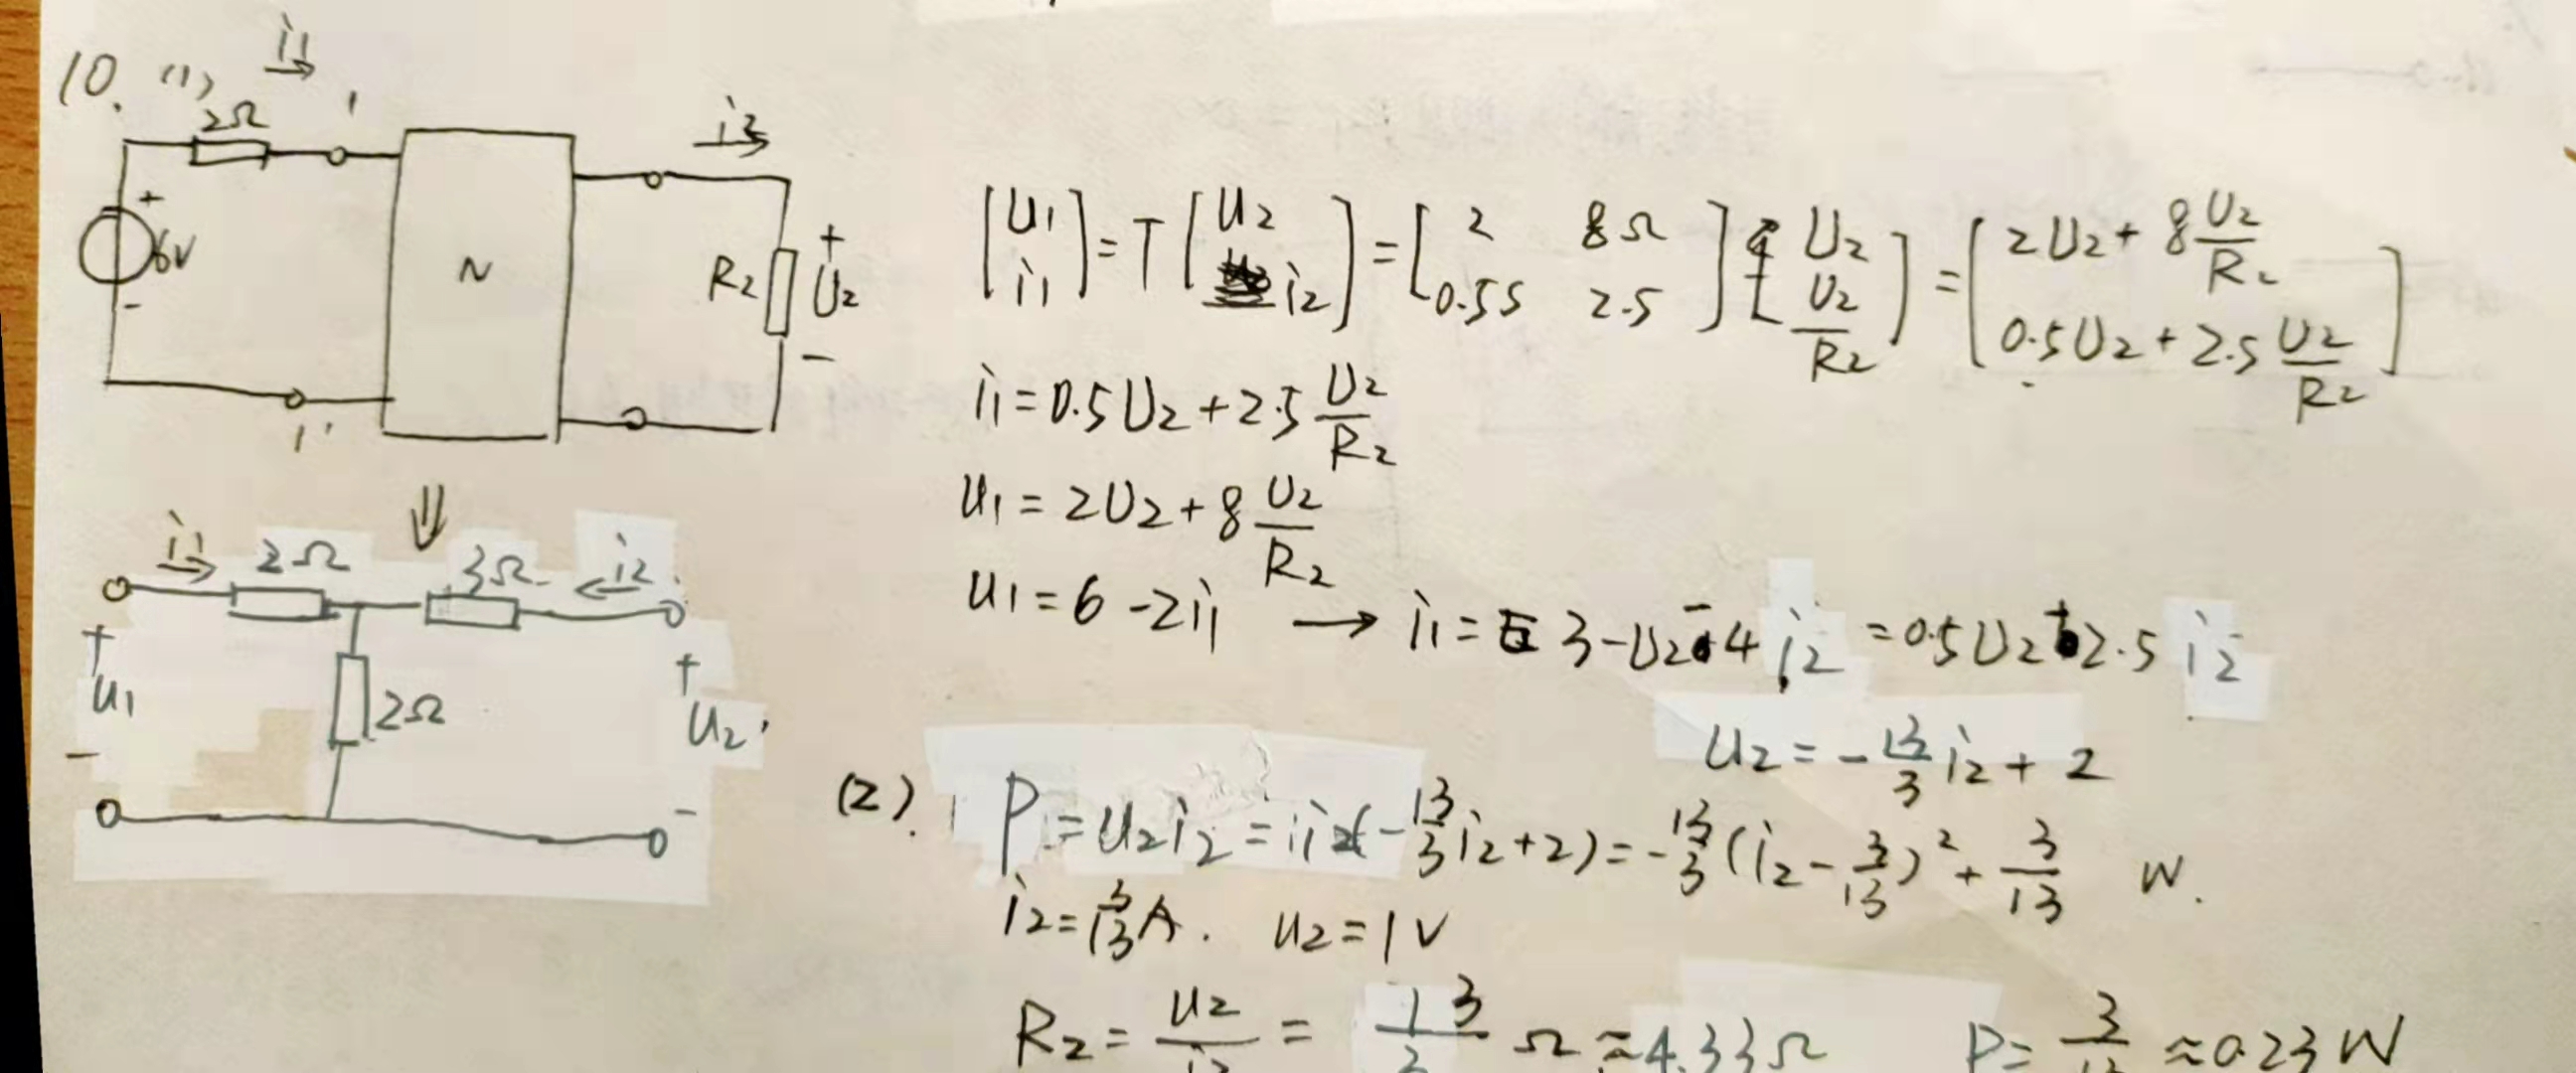 10. (1) i1
2Ω 1 i2
+ 6V - N R2 + U2 -
1'
[U1 i1] = T [U2 i2] = [2 8Ω 0.5S 2.5] [U2 U2/R2] = [2U2 + 8 U2/R2 0.5U2 + 2.5 U2/R2]
i1 = 0.5U2 + 2.5 U2/R2
U1 = 2U2 + 8 U2/R2
U1 = 6 - 2i1 → i1 = 3 - U2 - 4 i2 = 0.5U2 + 2.5 i2
U2 = - 13/3 i2 + 2
⇓
i1 2Ω 3Ω i2
+ U1 - 2Ω + U2 -
(2). P = U2i2 = i2(-13/3 i2 + 2) = -13/3 (i2 - 3/13)² + 3/13 W.
i2 = 3/13 A. U2 = 1V
R2 = U2/i2 = 13/3 Ω ≈ 4.33Ω P = 3/13 ≈ 0.23W